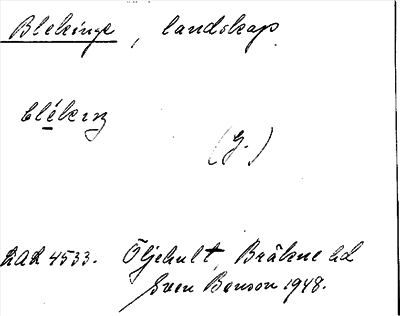 Blekinge, landskap.
blékıŋ
(G.)
LAL 4533. Öljehult, Bräkne hd
Sven Benson 1948.